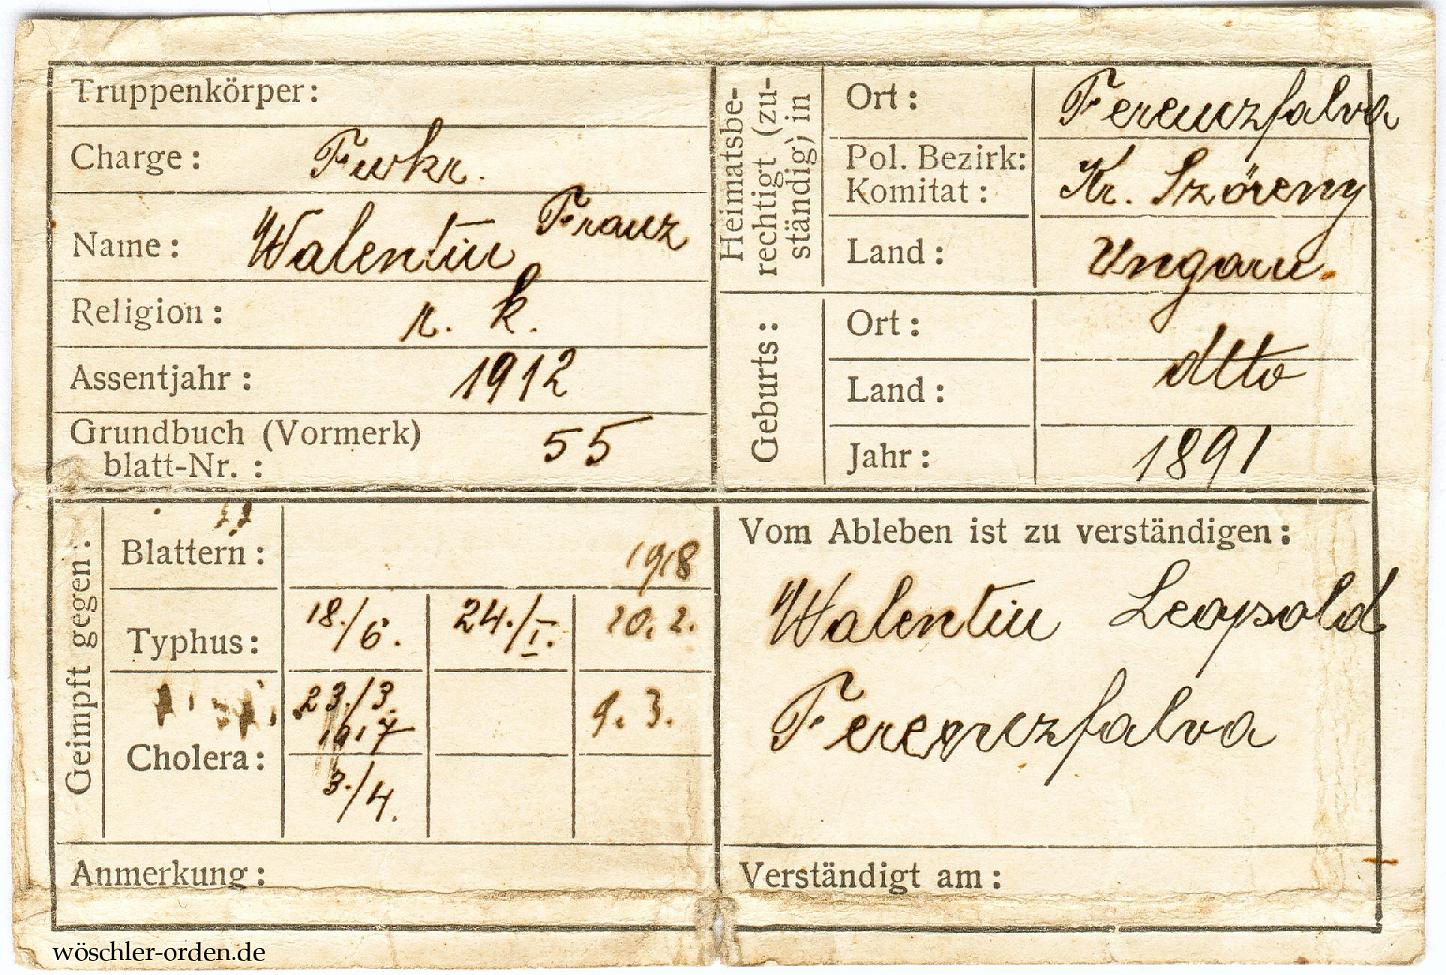 Truppenkörper:
Charge: Fwkr.
Name: Walentin Franz
Religion: r. k.
Assentjahr: 1912
Grundbuch (Vormerk)
blatt-Nr.: 55
Heimatsbe-
rechtigt (zu-
ständig) in
Ort: Ferenczfalva
Pol. Bezirk:
Komitat: Kr. Szöreny
Land: Ungarn.
Geburts:
Ort:
Land: dtto
Jahr: 1891
Geimpft gegen:
Blattern: 1918
Typhus: 18./6. 24./I. 20. 2.
23./3. 9. 3.
1917
Cholera:
3./4.
Anmerkung:
Vom Ableben ist zu verständigen:
Walentin Leopold
Ferenczfalva
Verständigt am:
wöschler-orden.de